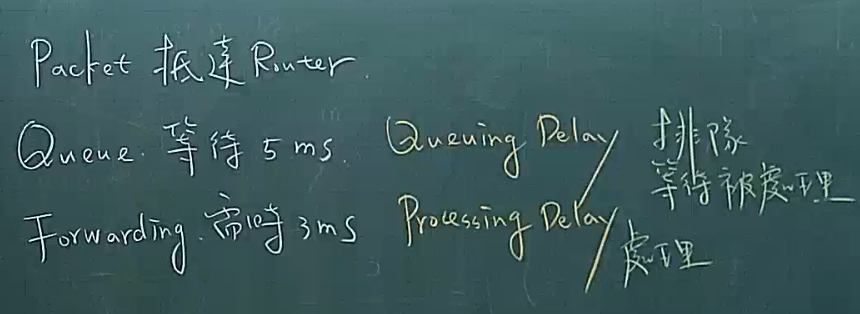 Packet 抵達 Router.
Queue. 等待 5 ms. Queuing Delay / 排隊 等待被處理
Forwarding. 需時 3 ms Processing Delay / 處理